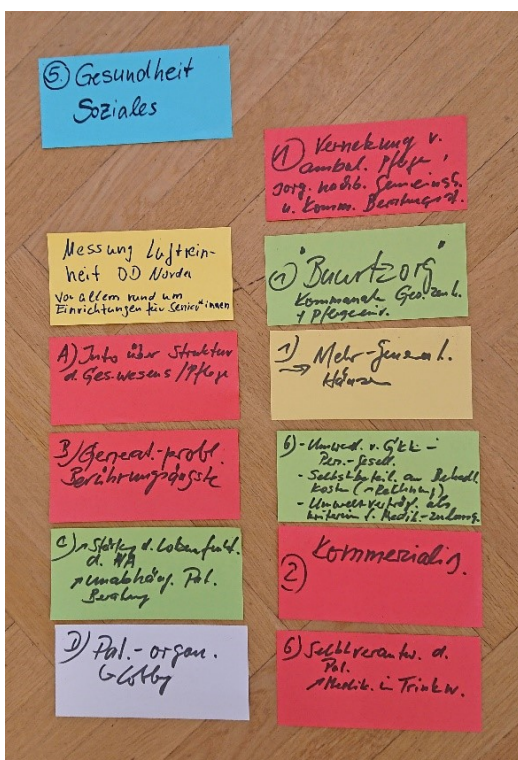 5. Gesundheit
Soziales
Messung Luftrein-
heit DD Norden
Vor allem rund um
Einrichtungen für Senior*innen
A) Info über Struktur
d. Ges.wesens / Pflege
B) General.-probl.
Berührungsängste
C) ↗ Stärkg d. Lotsenfunkt.
d. HA
↗ unabhäng. Pat.
Beratung
D) Pat.-organ.
↳ Lobby
1) Vernetzung v.
ambul. Pflege,
sorg. nachb. Gemeinsch.
u. Komm. Beratungsst.
1) "Buurtzorg"
Kommunale Ges.zent.
1) Mehr-Generat.
→ Häuser
6) - Umwand. v. GKK -
Pers.-Gesell.
- Selbstbeteil. an Behandl.
Kosten (↗ Rechnung)
- Umweltverträgl. als
Kriterium f. Medik.-zulassg.
2) Kommerzialis.
6) Selbstverantw. d.
Pat.
↗ Medik. in Trinkw.